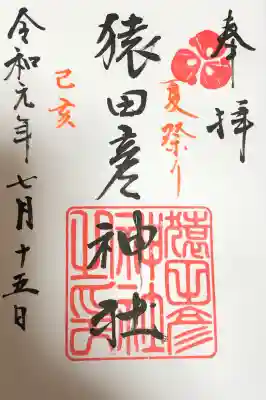 奉拝
夏祭り
猿田彦神社
猿田彦神社之印
己亥
令和元年七月十五日